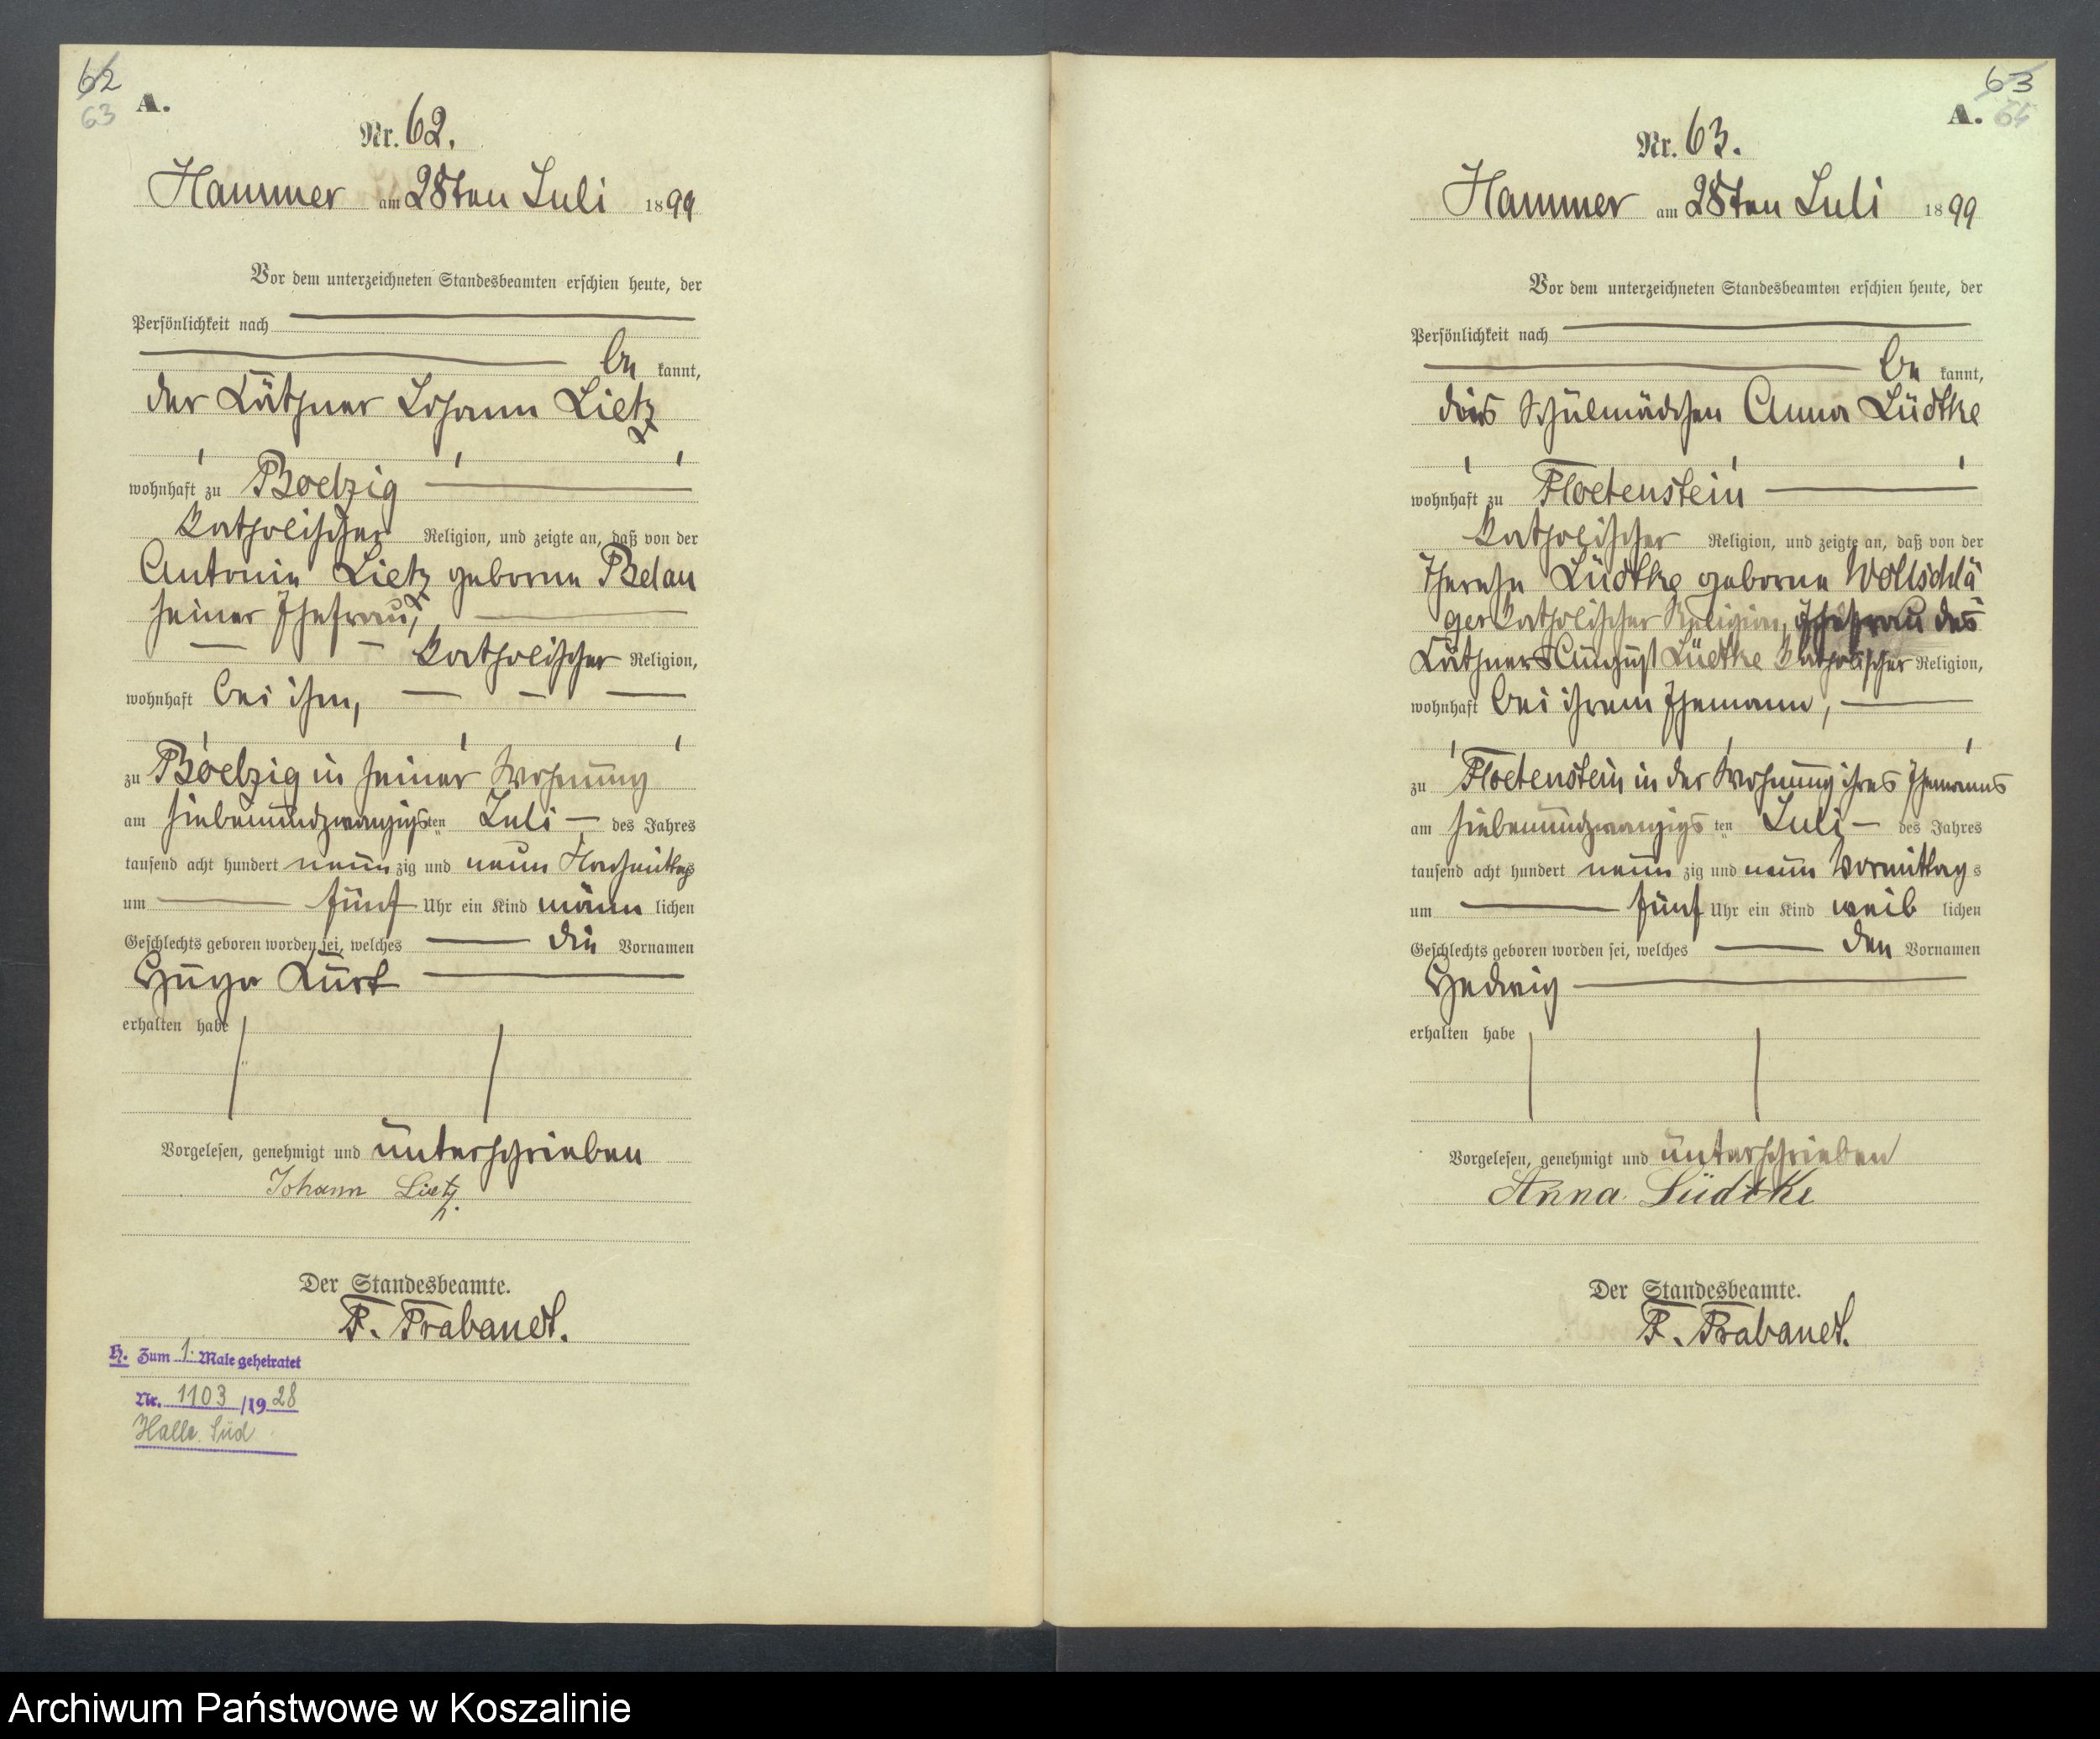 62
63
A.
Nr. 62.
Hammer am 28ten Juli 1899
Vor dem unterzeichneten Standesbeamten erschien heute, der
Persönlichkeit nach
be kannt,
der Käthner Johann Lietz
wohnhaft zu Boelzig
katholischer Religion, und zeigte an, daß von der
Antonie Lietz geborne Belau
seiner Ehefrau,
katholischer Religion,
wohnhaft bei ihm,
zu Boelzig in seiner Wohnung
am siebenundzwanzigsten Juli des Jahres
tausend acht hundert neunzig und neun Nachmittags
um fünf Uhr ein Kind männlichen
Geschlechts geboren worden sei, welches die Vornamen
Hugo Kurt
erhalten habe
Vorgelesen, genehmigt und unterschrieben
Johann Lietz
Der Standesbeamte.
F. Prabandt.
H. Zum 1. Male geheiratet
Nr. 1103/1928
Halle Süd
63
A. 64
Nr. 63.
Hammer am 28ten Juli 1899
Vor dem unterzeichneten Standesbeamten erschien heute, der
Persönlichkeit nach
be kannt,
das Schulmädchen Anna Lüdtke
wohnhaft zu Floetenstein
katholischer Religion, und zeigte an, daß von der
Therese Lüdtke geborne Wollschlä
ger katholischer Religion, Ehefrau des
Käthner August Lüdtke katholischer Religion,
wohnhaft bei ihrem Ehemann,
zu Floetenstein in der Wohnung ihres Ehemanns
am siebenundzwanzigs ten Juli des Jahres
tausend acht hundert neun zig und neun Vormittag s
um fünf Uhr ein Kind weib lichen
Geschlechts geboren worden sei, welches den Vornamen
Hedwig
erhalten habe
Vorgelesen, genehmigt und unterschrieben
Anna Lüdtke
Der Standesbeamte.
F. Prabandt.
Archiwum Państwowe w Koszalinie